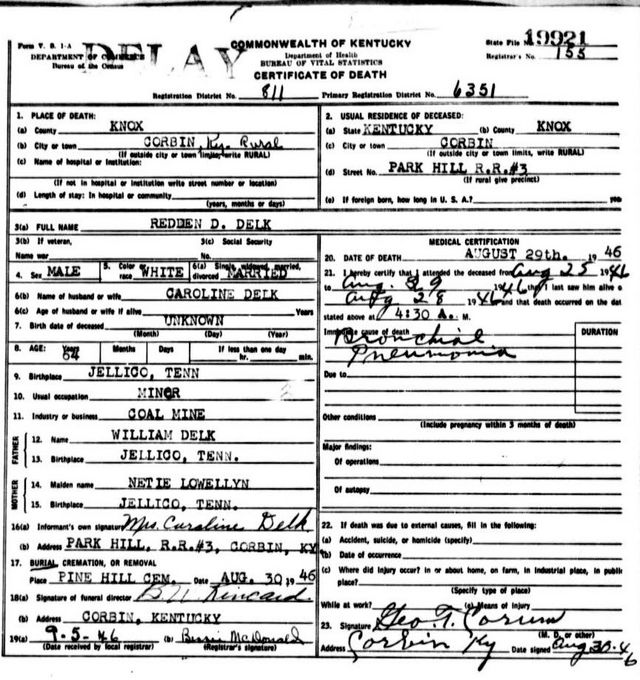 Form V. S. 1-A
DEPARTMENT OF COMMERCE
Bureau of the Census
DELAY
COMMONWEALTH OF KENTUCKY
Department of Health
BUREAU OF VITAL STATISTICS
CERTIFICATE OF DEATH
State File No. 19921
Registrar's No. 155
Registration District No. 811 Primary Registration District No. 6351
1. PLACE OF DEATH:
(a) County KNOX
(b) City or town CORBIN, Ky. Rural
(If outside city or town limits, write RURAL)
(c) Name of hospital or institution:
(If not in hospital or institution write street number or location)
(d) Length of stay: In hospital or community
(years, months or days)
2. USUAL RESIDENCE OF DECEASED:
(a) State KENTUCKY (b) County KNOX
(c) City or town CORBIN
(If outside city or town limits, write RURAL)
(d) Street No. PARK HILL R.R.#3
(If rural give precinct)
(e) If foreign born, how long in U. S. A.? years
3(a) FULL NAME REDDEN D. DELK
3(b) If veteran, 3(c) Social Security
Name war No.
4. Sex MALE 5. Color or race WHITE 6(a) Single, widowed, married, divorced MARRIED
6(b) Name of husband or wife CAROLINE DELK
6(c) Age of husband or wife if alive Years
7. Birth date of deceased UNKNOWN
(Month) (Day) (Year)
8. AGE: Years 64 Months Days If less than one day
hr. min.
9. Birthplace JELLICO, TENN
10. Usual occupation MINOR
11. Industry or business COAL MINE
FATHER
12. Name WILLIAM DELK
13. Birthplace JELLICO, TENN.
MOTHER
14. Maiden name NETIE LOWELLYN
15. Birthplace JELLICO, TENN.
16(a) Informant's own signature Mrs. Caroline Delk
(b) Address PARK HILL, R.R.#3, CORBIN, KY
17. BURIAL, CREMATION, OR REMOVAL
Place PINE HILL CEM. Date AUG. 30, 1946
18(a) Signature of funeral director B.U. Kincaid
(b) Address CORBIN, KENTUCKY
19(a) 9-5-46 (b) Bessie McDonald
(Date received by local registrar) (Registrar's signature)
MEDICAL CERTIFICATION
20. DATE OF DEATH AUGUST 29th. 1946
21. I hereby certify that I attended the deceased from Aug 25 1946
to Aug. 29 1946 that I last saw him alive o
Aug 28 1946 and that death occurred on the dat
stated above at 4:30 A. M.
DURATION
Immediate cause of death Bronchial
Pneumonia
Due to
Other conditions
(Include pregnancy within 3 months of death)
Major findings:
Of operations
Of autopsy
22. If death was due to external causes, fill in the following:
(a) Accident, suicide, or homicide (specify)
(b) Date of occurrence
(c) Where did injury occur? In or about home, on farm, in industrial place, in public
place?
(Specify type of place)
While at work? (e) Means of injury
23. Signature Geo. T. Corum
(M. D. or other)
Address Corbin Ky Date signed Aug 30-46